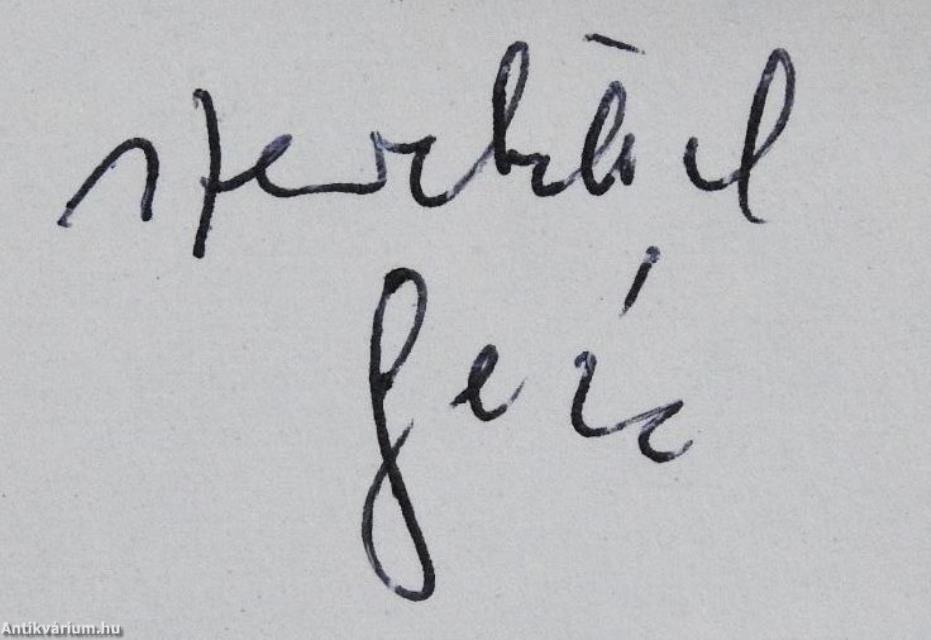 szeretettel
Antikvárium.hu